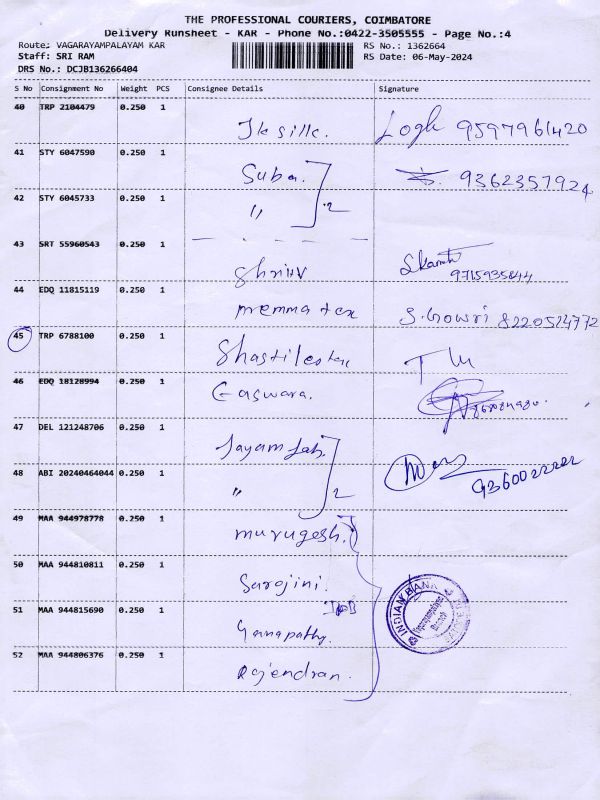 THE PROFESSIONAL COURIERS, COIMBATORE
Delivery Runsheet - KAR - Phone No.:0422-3505555 - Page No.:4
Route: VAGARAYAMPALAYAM KAR RS No.: 1362664
Staff: SRI RAM RS Date: 06-May-2024
DRS No.: DCJB136266404
S No Consignment No Weight PCS Consignee Details Signature
40 TRP 2104479 0.250 1
Jk silk. Logh 9597961420
41 STY 6047590 0.250 1
Suba. 9362357924
42 STY 6045733 0.250 1
" 2
43 SRT 55960543 0.250 1
44 EDQ 11815119 0.250 1
premma tex S.Gowri 8220514772
45 TRP 6788100 0.250 1
46 EDQ 18128994 0.250 1
Easwara.
47 DEL 121248706 0.250 1
Jayam fab.
48 ABI 20240464044 0.250 1
" 2 9360022222
49 MAA 944978778 0.250 1
murugesh.
50 MAA 944810811 0.250 1
Sarojini.
51 MAA 944815690 0.250 1
Ganapathy.
52 MAA 944806376 0.250 1
Rajendran.
INDIAN BANK
Branch